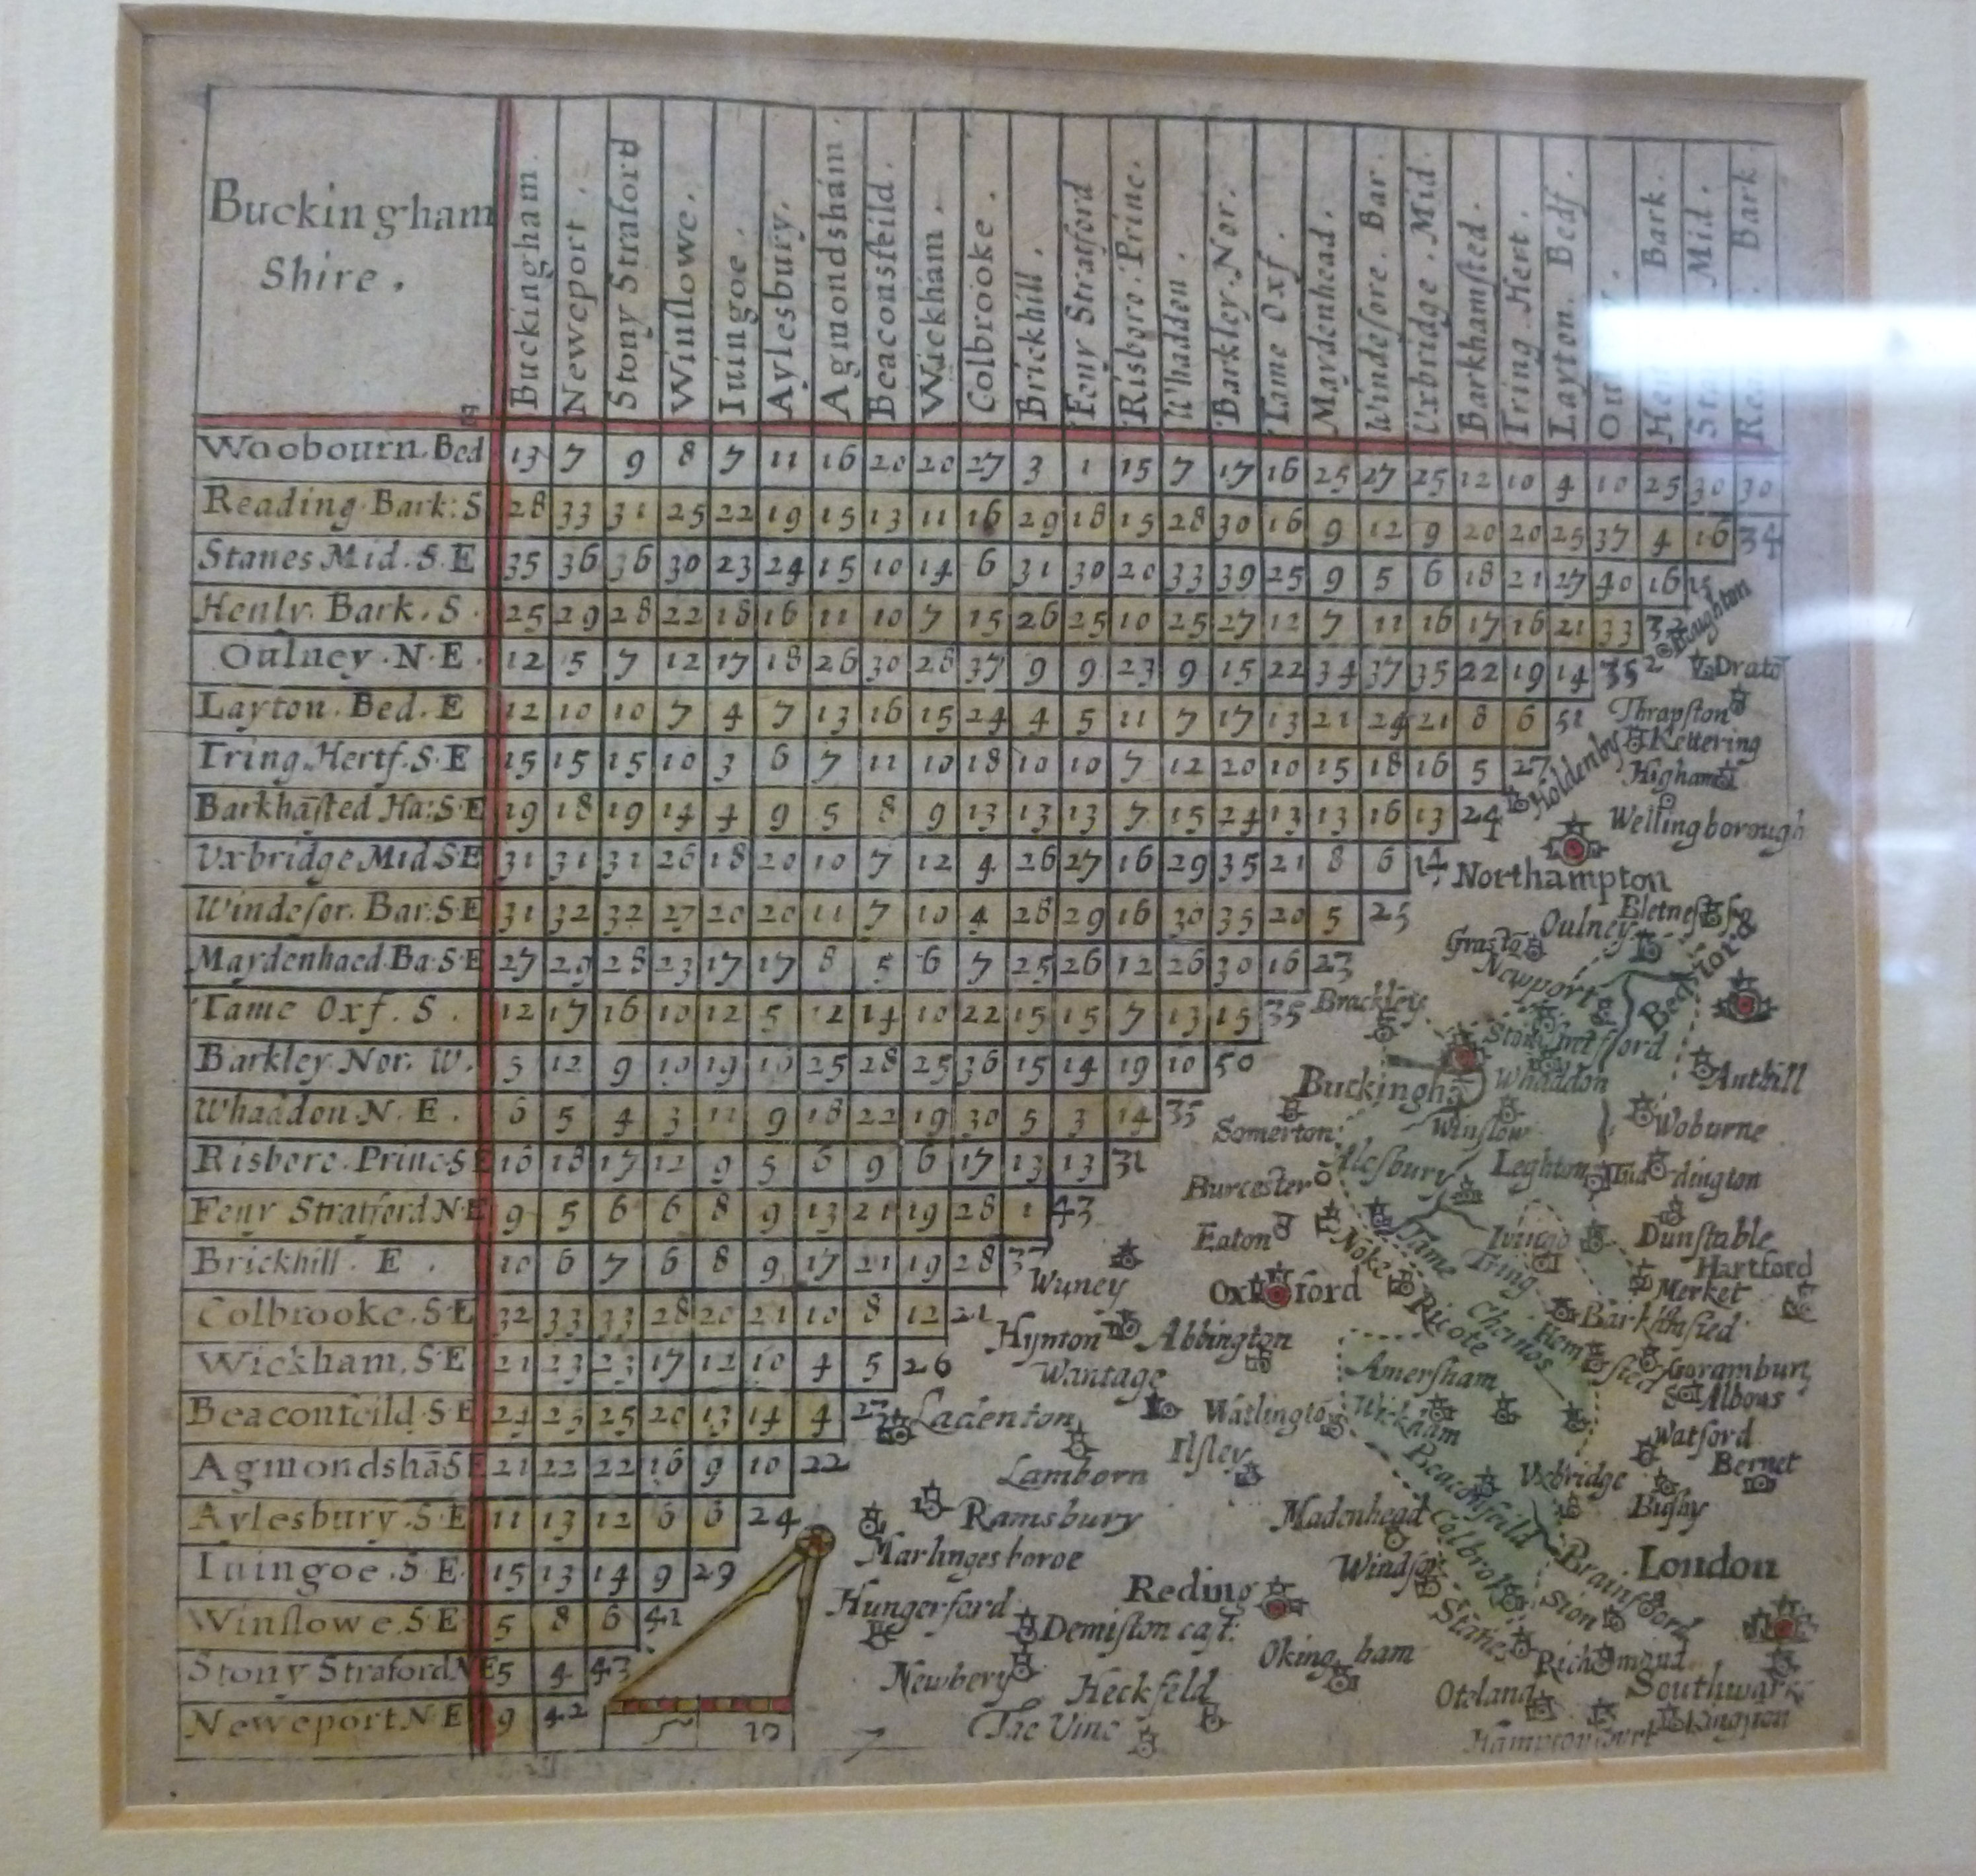 Buckingham
Shire .
Buckingham .
Neweport .
Stony Straford
Winslowe .
Iuingoe .
Aylesbury .
Agmondsham
Beaconsfeild .
Wickham .
Colbrooke .
Brickhill .
Feny Stratford
Risboro . Princ .
Whadden .
Barkley . Nor .
Tame Oxf .
Maydenhead .
Windesore . Bar .
Uxbridge . Mid .
Barkhamsted .
Tring . Hert .
Layton . Bedf .
Bark .
Mid .
Bark
Woobourn . Bed 13 7 9 8 7 11 16 20 20 27 3 1 15 7 17 16 25 27 25 12 10 4 10 25 30 30
Reading . Bark : S 28 33 31 25 22 19 15 13 11 16 29 18 15 28 30 16 9 12 9 20 20 25 37 4 16 34
Stanes Mid . S . E 35 36 36 30 23 24 15 10 14 6 31 30 20 33 39 25 9 5 6 18 21 27 40 16
Henly . Bark . S . 25 29 28 22 18 16 11 10 7 15 26 25 10 25 27 12 7 11 16 17 16 21 33
Oulney . N . E . 12 5 7 12 17 18 26 30 28 37 9 9 23 9 15 22 34 37 35 22 19 14 35
Layton . Bed . E 12 10 10 7 4 7 13 16 15 24 4 5 11 7 17 13 21 24 21 8 6 51
Tring . Hertf . S . E 15 15 15 10 3 6 7 11 10 18 10 10 7 12 20 10 15 18 16 5 27
Barkhāsted Ha : S . E 19 18 19 14 4 9 5 8 9 13 13 13 7 15 24 13 13 16 13 24
Vxbridge Mid S E 31 31 31 26 18 20 10 7 12 4 26 27 16 29 35 21 8 6 14
Windesor . Bar : S E 31 32 32 27 20 20 11 7 10 4 28 29 16 30 35 20 5 25
Maydenhaed . Ba : S . E 27 29 28 23 17 17 8 5 6 7 25 26 12 26 30 16 23
Tame Oxf . S . 12 17 16 10 12 5 12 14 10 22 15 15 7 13 15 35
Barkley . Nor . W . 5 12 9 10 19 16 25 28 25 36 15 14 19 10 50
Whaddon . N . E . 6 5 4 3 11 9 18 22 19 30 5 3 14 35
Risboro . Princ . S E 16 18 17 12 9 5 6 9 6 17 13 13 31
Feny Stratford N . E 9 5 6 6 8 9 13 21 19 28 1 43
Brickhill . E . 10 6 7 6 8 9 17 21 19 28
Colbrooke . S E 32 33 33 28 20 21 10 8 12 21
Wickham . S E 21 23 23 17 12 10 4 5 26
Beaconfeild . S E 24 25 25 20 13 14 4
Agmondshā S E 21 22 22 16 9 10 22
Aylesbury . S . E 11 13 12 6 6 24
Iuingoe . S E . 15 13 14 9 29
Winslowe . S . E 5 8 6 41
Stony Straford . N E 5 4 43
Neweport N E 9 42
5 10
Drato
Thrapston
Kettering
Holdenby
Higham
Wellingborough
Northampton
Oulney
Grasto
Newport
Bedford
Brackley
Anthill
Buckinghā
Whaddon
Woburne
Somerton
Winslow
Alesbury
Leghton
Burcester
Eaton
Noke
Tame
Iuingo
Dunstable
Tring
Hartford
Wuney
Oxford
Merket
Ricote
Barkhamsted
Hynton
Abbington
Wantage
Amersham
Goramburi
S Albons
Ladenton
Watlington
Wickham
Ilsley
Watford
Lamborn
Beaconsfeild
Vxbridge
Bernet
Ramsbury
Madenhead
Bushy
Marlingesboroe
Colbrok
Windsor
Brainford
London
Hungerford
Reding
Sion
Demiston cast :
Stanes
Oking ham
Richmond
Newbery
Heckfeld
Oteland
Southwark
The Vine
Hamptoncourt
Kingston